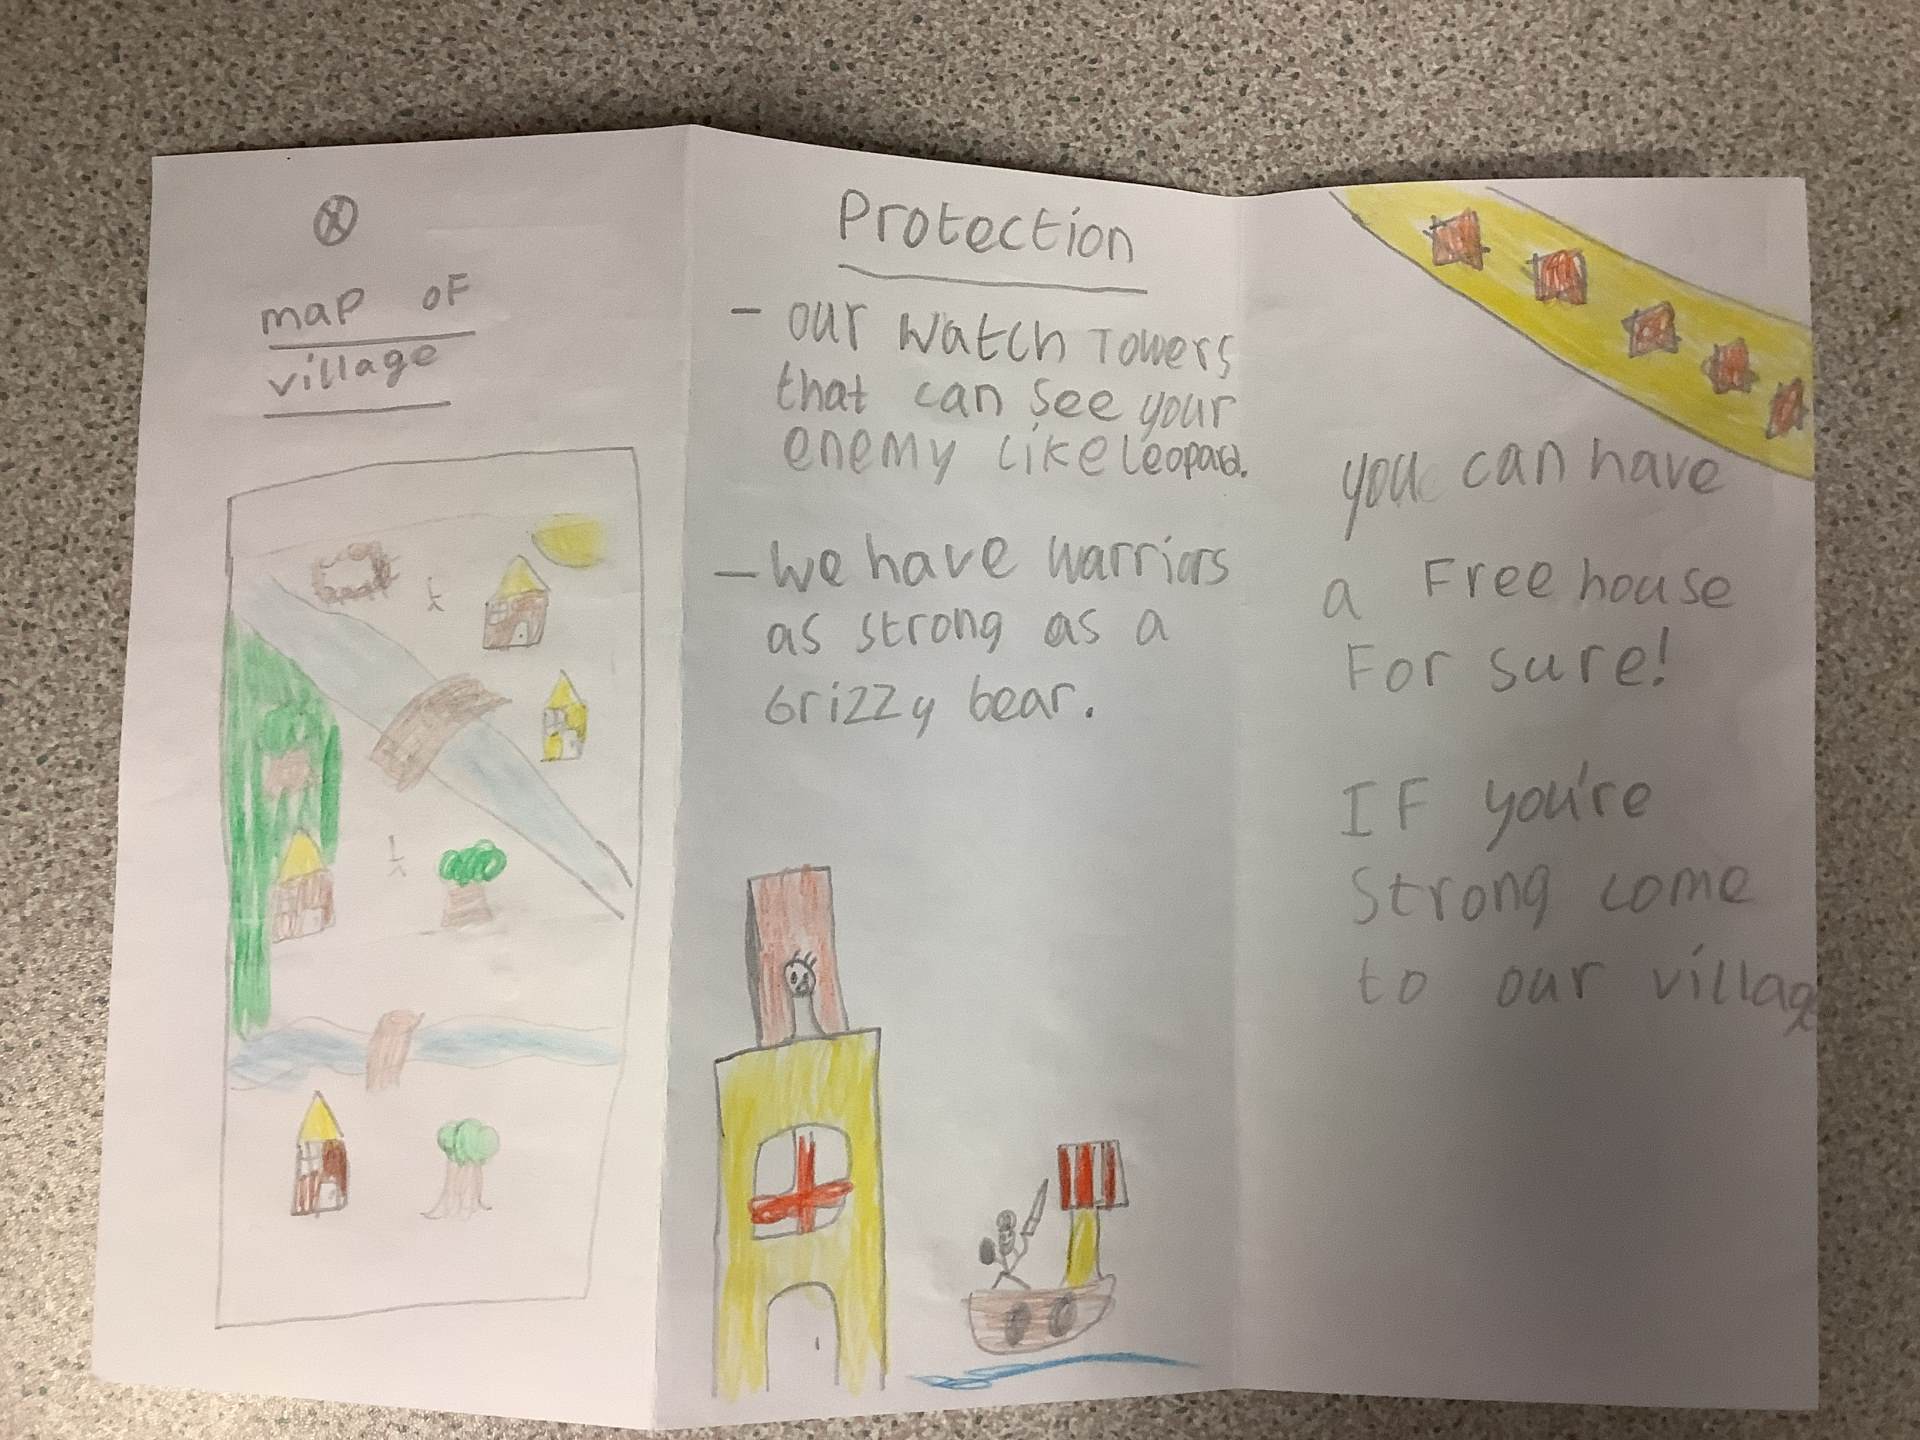 map of
village
Protection
- our watch Towers
that can see your
enemy like leopard.
- we have warriors
as strong as a
Grizzy bear.
you can have
a Free house
For sure!
IF you're
Strong come
to our village